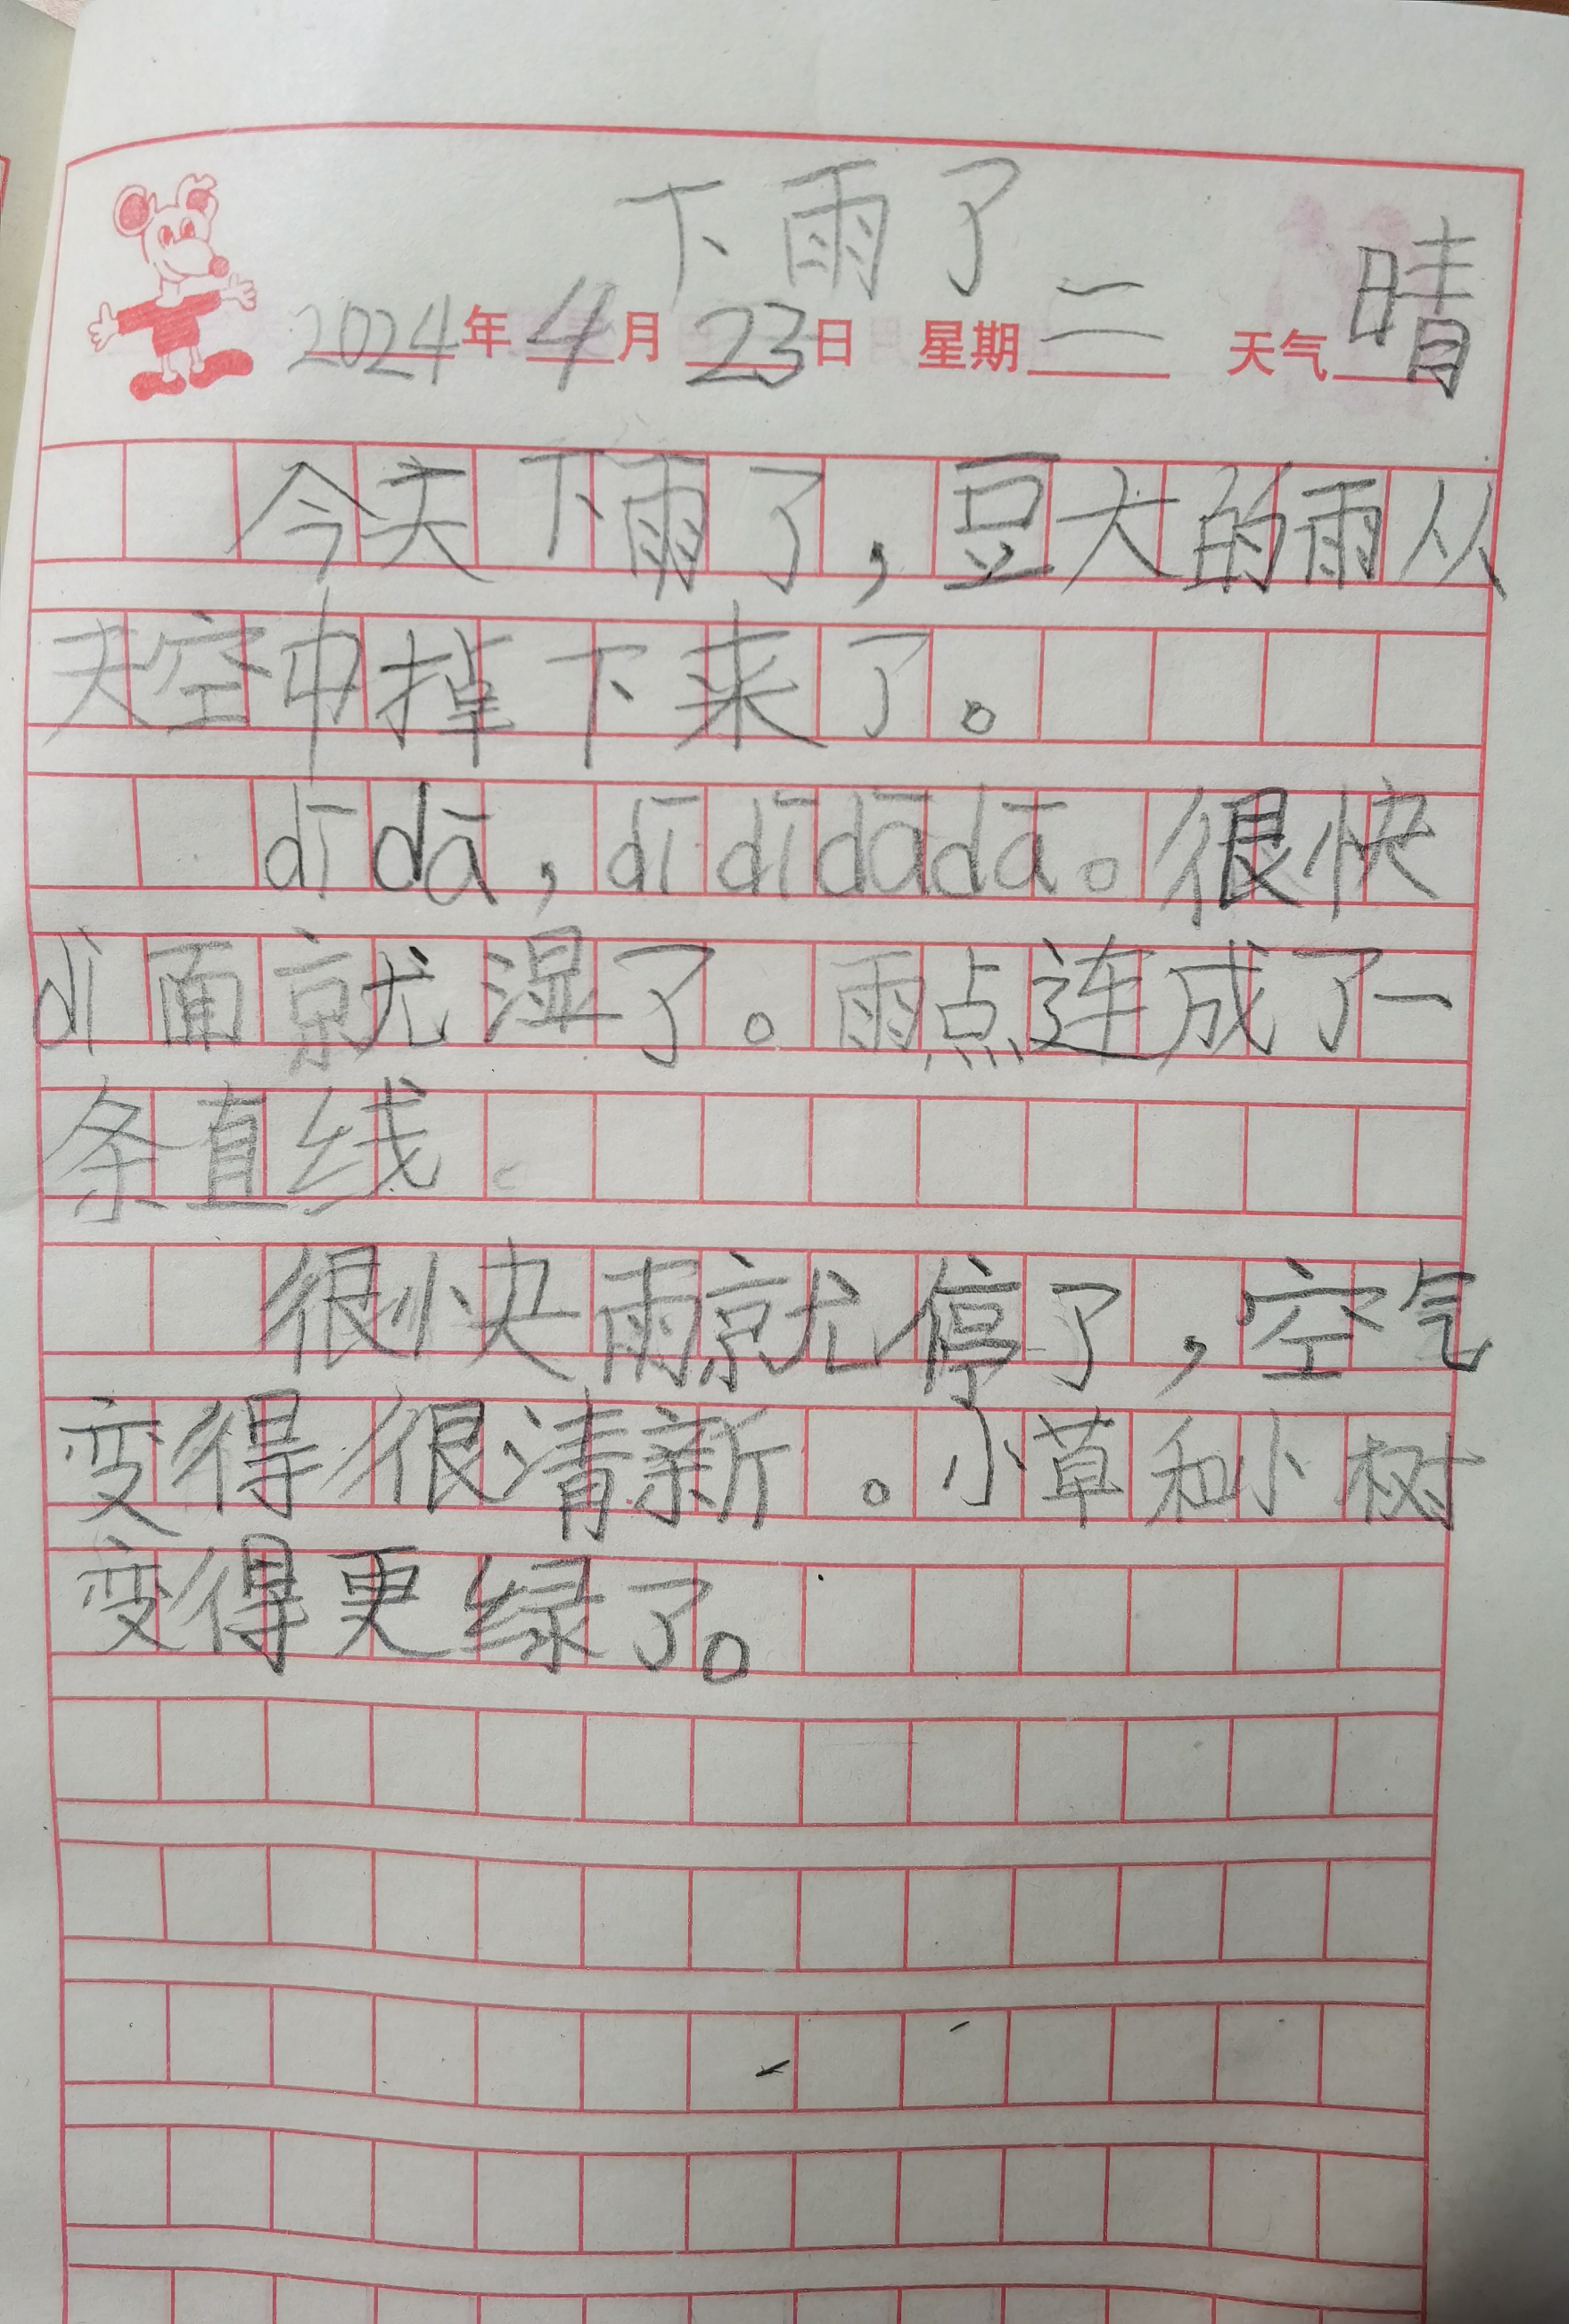 下雨了
2024年4月23日 星期二 天气晴
今天下雨了，豆大的雨从
天空中掉下来了。
dī dā，dī dī dā dā。很快
dì面就湿了。雨点连成了一
条直线。
很快雨就停了，空气
变得很清新。小草和小树
变得更绿了。